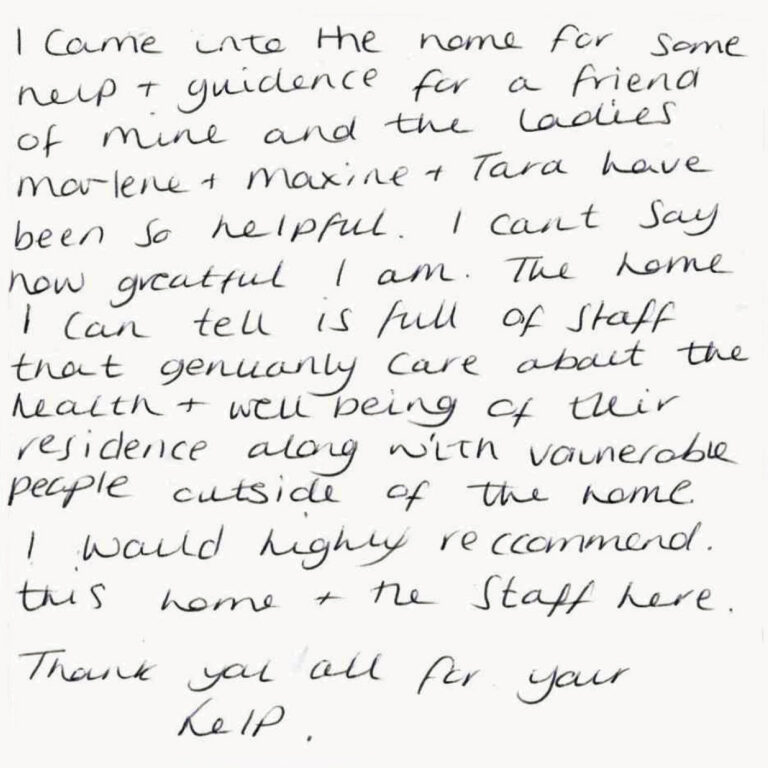 I came into the home for some
help + guidence for a friend
of mine and the ladies
marlene + maxine + Tara have
been so helpful. I cant say
how greatful I am. The home
I can tell is full of staff
that genuanly care about the
health + well being of their
residence along with vaunerable
people outside of the home.
I would highly reccommend.
this home + the staff here.
Thank you all for your
help.